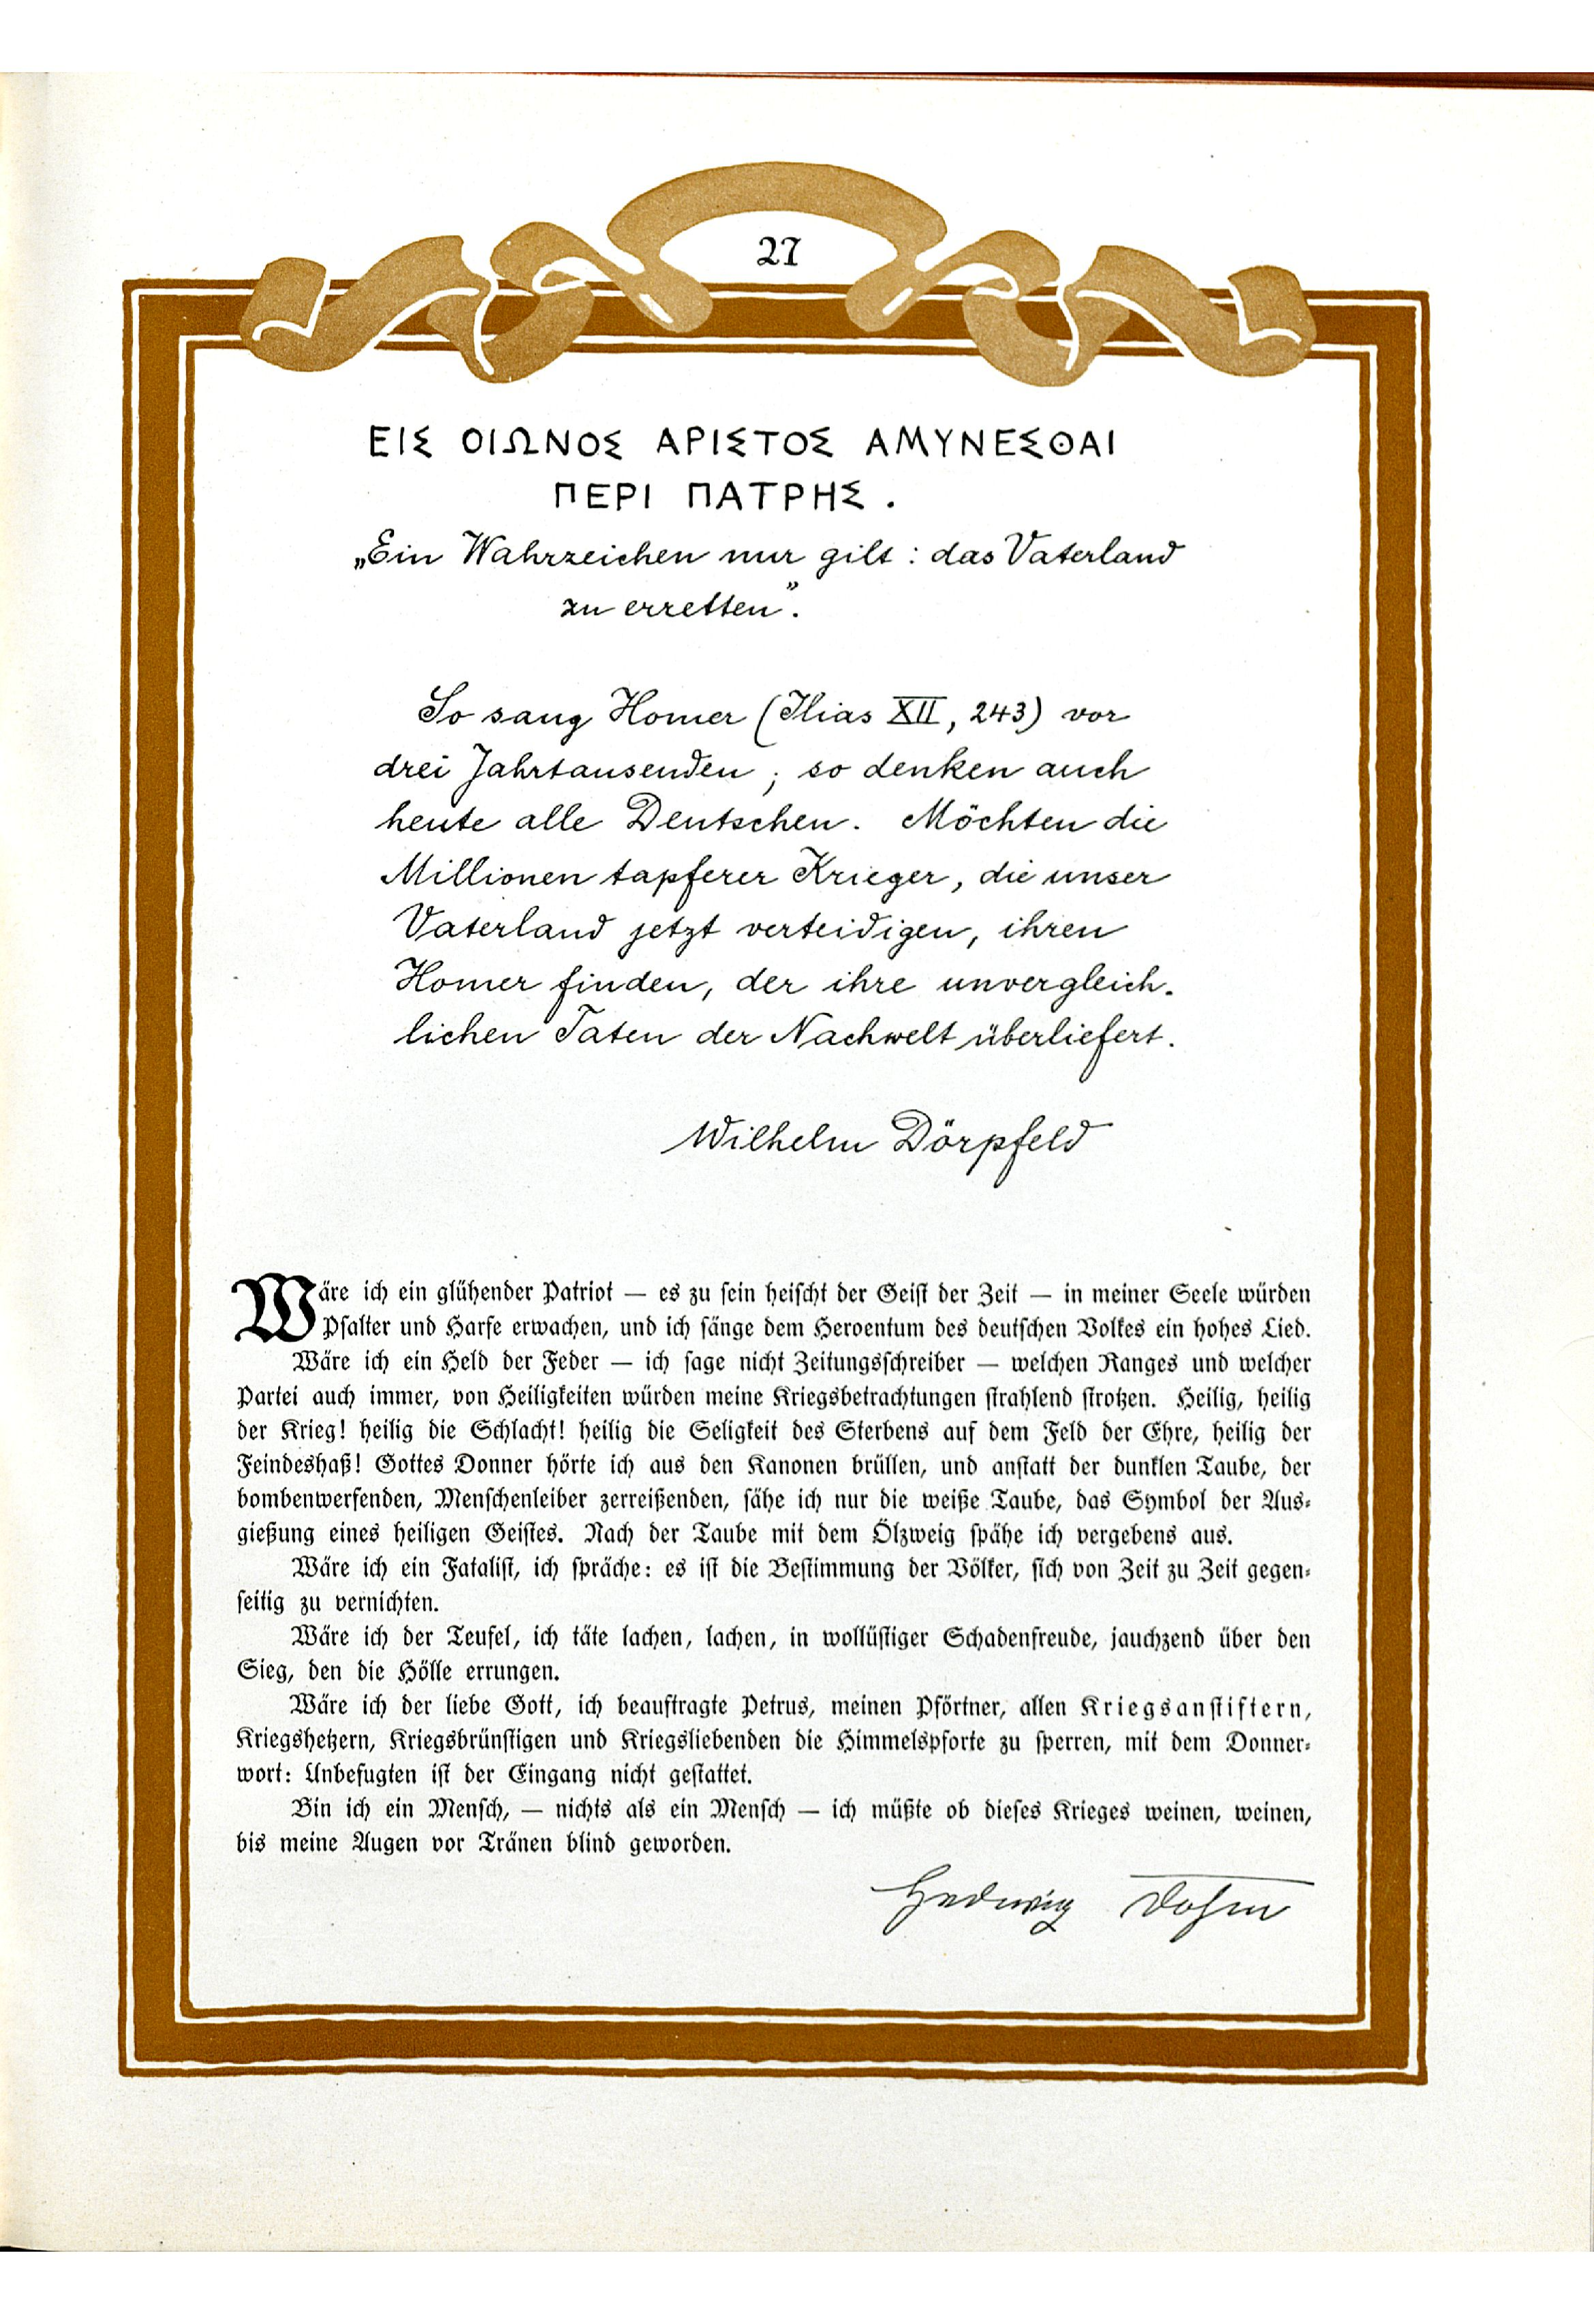 27
ΕΙΣ ΟΙΩΝΟΣ ΑΡΙΣΤΟΣ ΑΜΥΝΕΣΘΑΙ
ΠΕΡΙ ΠΑΤΡΗΣ.
„Ein Wahrzeichen nur gilt: das Vaterland
zu erretten”.
So sang Homer (Ilias XII, 243) vor
drei Jahrtausenden; so denken auch
heute alle Deutschen. Möchten die
Millionen tapferer Krieger, die unser
Vaterland jetzt verteidigen, ihren
Homer finden, der ihre unvergleich-
lichen Taten der Nachwelt überliefert.
Wilhelm Dörpfeld
Wäre ich ein glühender Patriot — es zu sein heischt der Geist der Zeit — in meiner Seele würden
Psalter und Harfe erwachen, und ich sänge dem Heroentum des deutschen Volkes ein hohes Lied.
Wäre ich ein Held der Feder — ich sage nicht Zeitungsschreiber — welchen Ranges und welcher
Partei auch immer, von Heiligkeiten würden meine Kriegsbetrachtungen strahlend strotzen. Heilig, heilig
der Krieg! heilig die Schlacht! heilig die Seligkeit des Sterbens auf dem Feld der Ehre, heilig der
Feindeshaß! Gottes Donner hörte ich aus den Kanonen brüllen, und anstatt der dunklen Taube, der
bombenwerfenden, Menschenleiber zerreißenden, sähe ich nur die weiße Taube, das Symbol der Aus-
gießung eines heiligen Geistes. Nach der Taube mit dem Ölzweig spähe ich vergebens aus.
Wäre ich ein Fatalist, ich spräche: es ist die Bestimmung der Völker, sich von Zeit zu Zeit gegen-
seitig zu vernichten.
Wäre ich der Teufel, ich täte lachen, lachen, in wollüstiger Schadenfreude, jauchzend über den
Sieg, den die Hölle errungen.
Wäre ich der liebe Gott, ich beauftragte Petrus, meinen Pförtner, allen Kriegsanstiftern,
Kriegshetzern, Kriegsbrünstigen und Kriegsliebenden die Himmelspforte zu sperren, mit dem Donner-
wort: Unbefugten ist der Eingang nicht gestattet.
Bin ich ein Mensch, — nichts als ein Mensch — ich müßte ob dieses Krieges weinen, weinen,
bis meine Augen vor Tränen blind geworden.
Hedwig Dohm